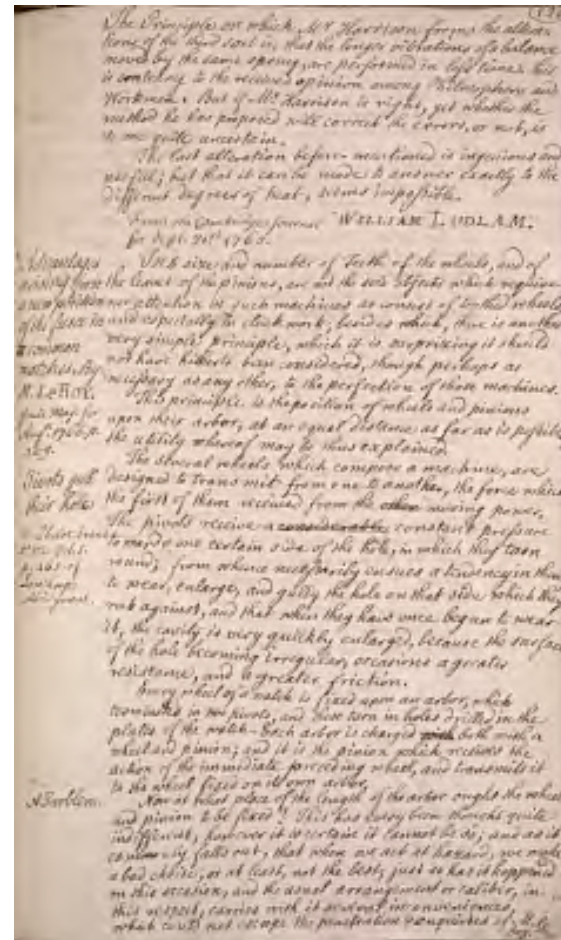 The Principles on which Mr Harrison forms the altera-
tions of the third sort is, that the longer vibrations of a balance
moved by the same spring, are performed in less time. This
is contrary to the received opinion among Philosophers and
Workmen. But if Mr Harrison is right, yet whether the
method he has proposed will correct the errors, or not, is
to me quite uncertain.
The last alteration before-mentioned is ingenious and
useful; but that it can be made to answer exactly to the
different degrees of heat, seems impossible.
From the Cambridge Journal WILLIAM LUDLAM.
for Sept. 1765.
Advantages
arising from
a new position
of the fusee in
a common
watches, by
M. Le Roy.
Mag. for
Augt. 1766. p.
The size and number of Teeth of the wheels, and of
the leaves of the pinions, are not the sole objects which require
our attention in such machines as consist of toothed wheels
and especially in clock work; besides which, there is another
very simple principle, which it is surprizing it should
not have hitherto been considered, though perhaps as
necessary as any other, to the perfection of those machines.
This principle is the position of wheels and pinions
upon their arbor, at an equal distance as far as is possible
the utility whereof may be thus explained.
Pivots
their hole
The several wheels which compose a machine, are
designed to transmit from one to another, the force which
the first of them received from the moving power.
The pivots receive a considerable constant pressure
towards one certain side of the hole, in which they turn
round; from whence necessarily ensues a tendency in them
to wear, enlarge, and gully the hole on that side which they
rub against, and that when they have once begun to wear
it, the cavity is very quickly enlarged, because the surface
of the hole becoming irregular, occasions a greater
resistance, and a greater friction.
Every wheel of a watch is fixed upon an arbor, which
terminates in two pivots, and these turn in holes drilled in the
plates of the watch. Each arbor is charged with both with a
wheel and pinion; and it is the pinion which receives the
action of the immediate preceding wheel, and transmits it
to the wheel fixed on its own arbor.
A Problem.
Now at what place of the length of the arbor ought the wheel
and pinion to be fixed? This has every been thought quite
indifferent, however it is certain it cannot be so; and as it
commonly falls out, that when we act at hazard, we make
a bad choice, or at least, not the best; just so has it happened
on this occasion, and the usual arrangement or caliber, in
this respect, carries with it several inconveniences,
which could not escape the penetration